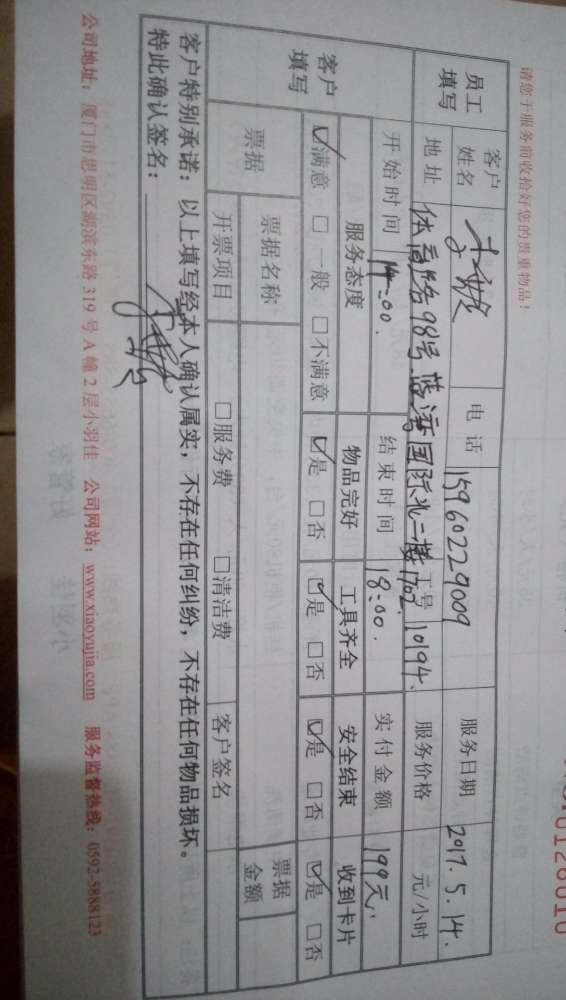 请您于服务前收拾好您的贵重物品！
员工填写 客户姓名 电话 15960229009 服务日期 2017.5.14.
地址 体育路98号蓝海国际 1702 工号 10194 服务价格 元/小时
开始时间 14:00. 结束时间 18:00. 实付金额 199元
客户填写 服务态度 物品完好 工具齐全 安全结束 收到卡片
☑满意 □一般 □不满意 ☑是 □否 ☑是 □否 ☑是 □否 ☑是 □否
票据 票据名称 票据金额
开票项目 □服务费 □清洁费 客户签名
客户特别承诺：以上填写经本人确认属实，不存在任何纠纷，不存在任何物品损坏。
特此确认签名：
公司地址：厦门市思明区湖滨东路319号A幢2层小羽佳 公司网站：www.xiaoyujia.com 服务监督热线：0592-5888123